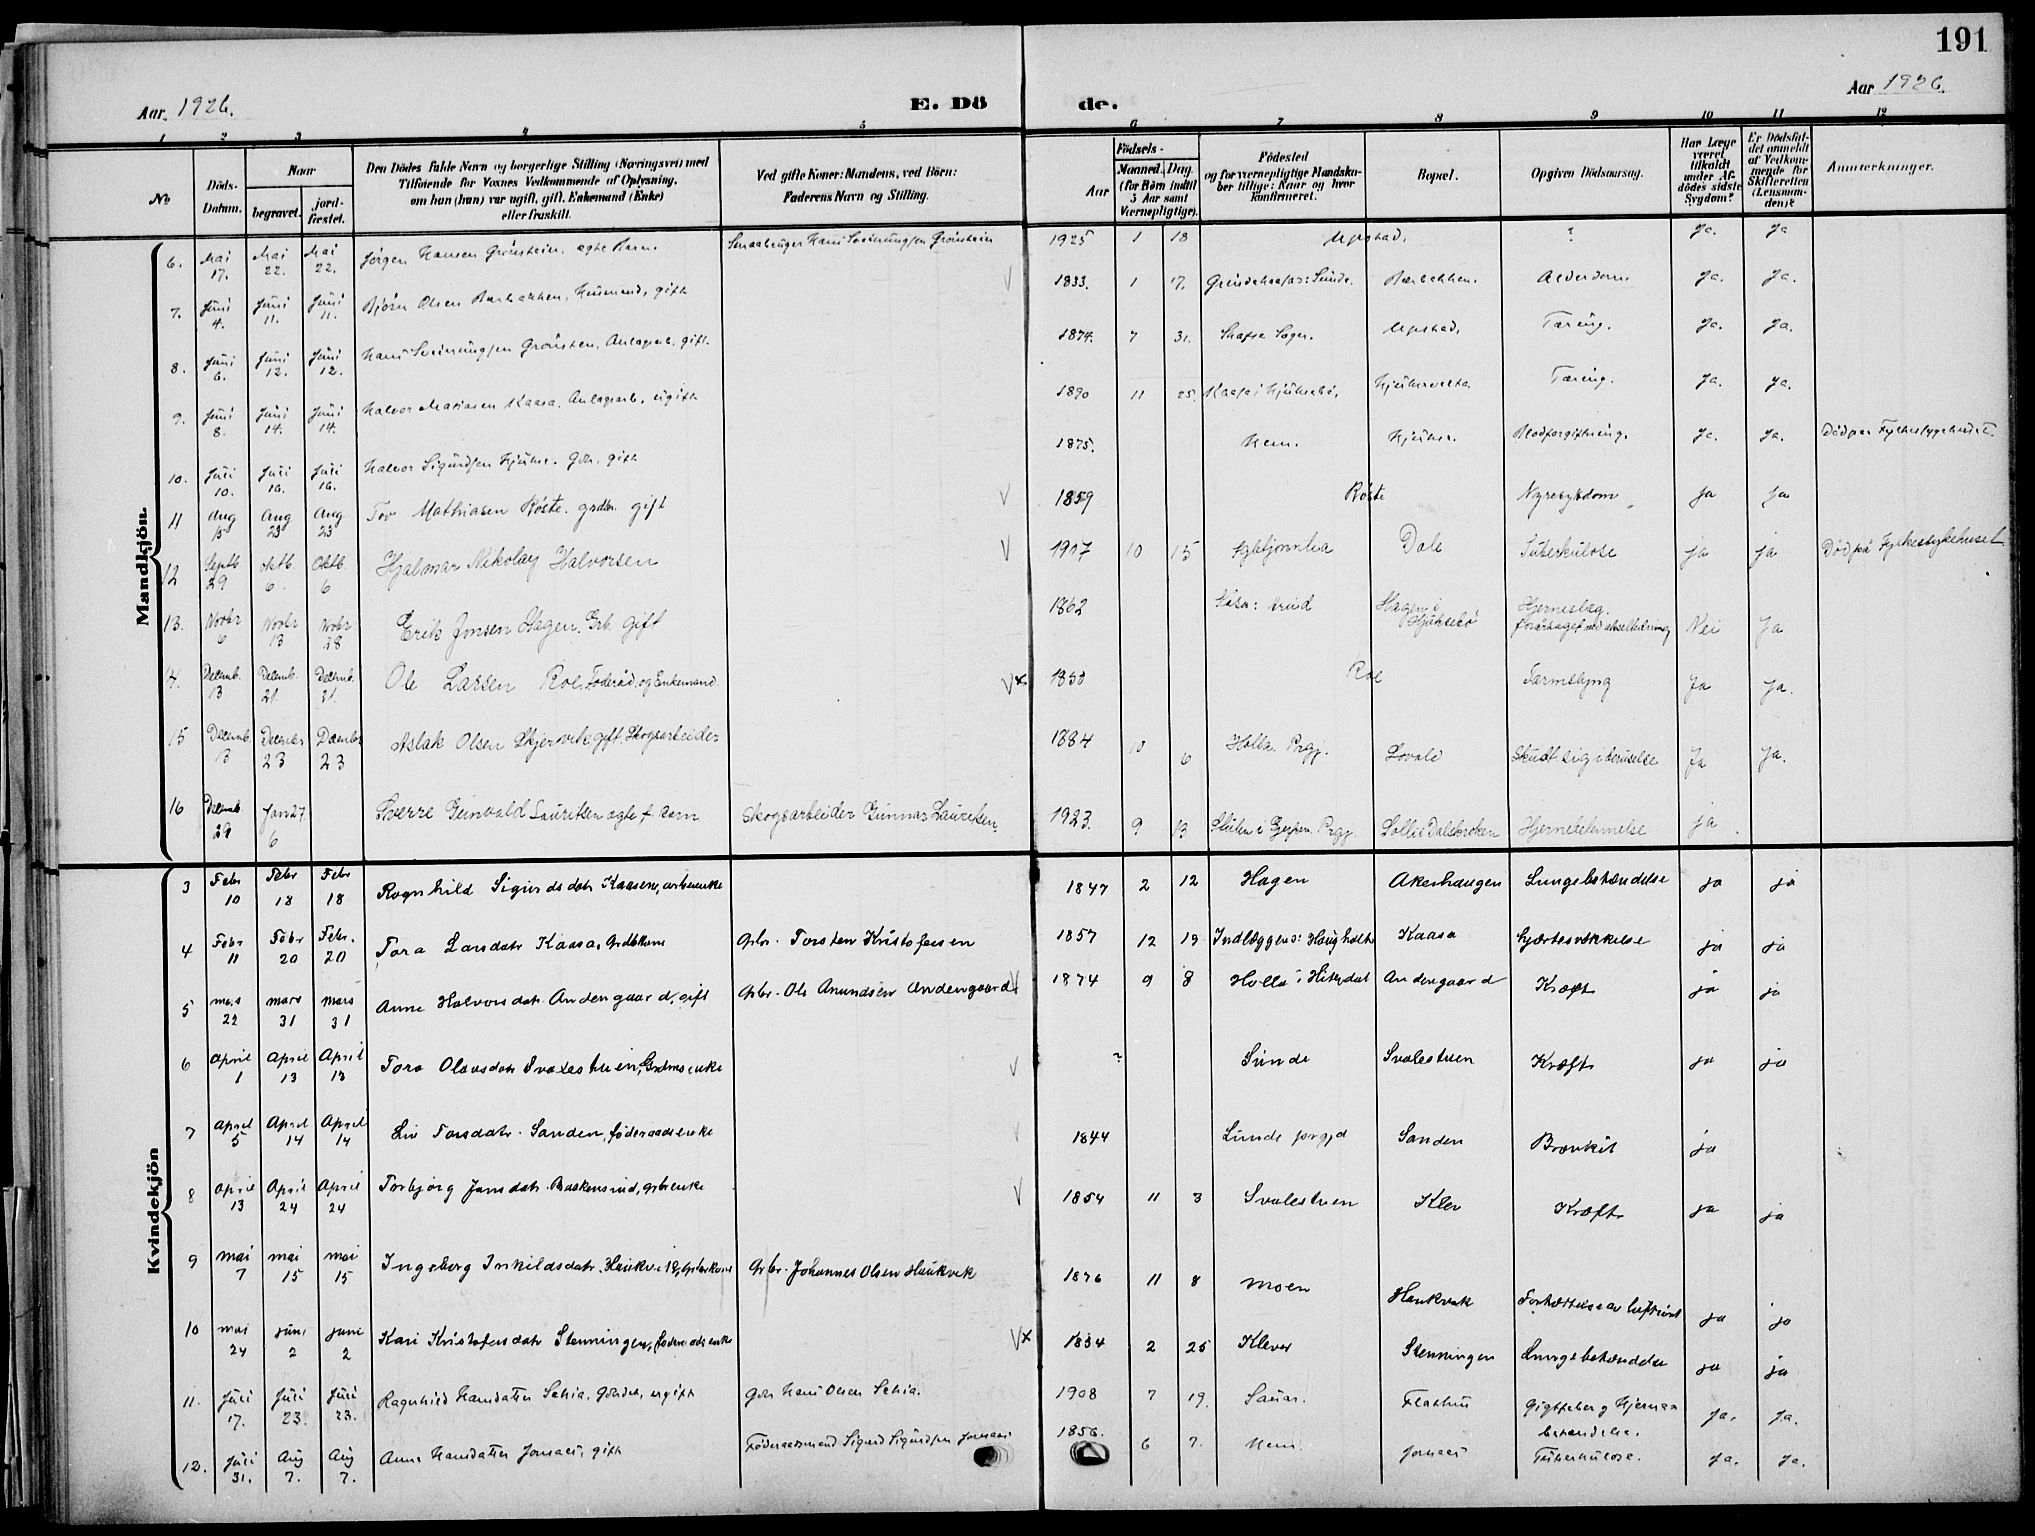 191
Aar 1926.
E. Döde.
Aar 1926.
1 2 3 4 5 6 7 8 9 10 11 12
No
Döds-Datum.
Naar
begravet.
jord-fæstet.
Den Dödes fulde Navn og borgerlige Stilling (Næringsvei) med
Tilføiende for Voxnes Vedkommende af Oplysning,
om han (hun) var ugift, gift, Enkemand (Enke)
eller fraskilt.
Ved gifte Koner: Mandens, ved Börn:
Faderens Navn og Stilling.
Födsels-
Aar
Maaned. Dag.
(for Børn indtil
5 Aar samt
Værnepligtige).
Födested
og for værnepligtige Mandska-
ber tillige: Naar og hvor
konfirmeret.
Bopæl.
Opgiven Dödsaarsag.
Har Læge
været
tilkaldt
under Af-
dødes sidste
Sygdom?
Er Dödsfal-
det anmeldt
af Vedkom-
mende for
Skifteretten
(Lensman-
den)?
Anmærkninger.
Mandkjön.
6. Mai 17. Mai 22. Mai 22. Jörgen Hansen Grönstein. ægte Barn. Smaabruger Hans Grönstein 1925 1 18 ? Ja. Ja
7. Juni 4. Juni 11. Juni 11. Björn Olsen Bærbakken, Husmand, gift 1833. 1 7. Bærbakken. Alderdom. Ja. Ja.
8. Juni 6. Juni 12. Juni 12. Hans Grönsten, gift. 1874. 7 31. Tæring. Ja. Ja.
9. Juni 8. Juni 14. Juni 14. Halvor Mariusen Kaasa. ugift 1890 11 25. Kaasa i Hjuksebö, Tæring. Ja. Ja.
10. Juli 10. Juli 16. Juli 16. Halvor Sigurdsen Hjukse. gift 1875. Nem. Hjukse. Blodforgiftning. Ja. Ja. Död paa Fylkessygehuset.
11 Aug 15 Aug 23 Aug 23 Tov Mathiasen Röste. gift 1859 Röste Nyresykdom Ja Ja
12 Septb 29 Oktb. 6. Oktb. 6 Hjalmar Nikolay Halvorsen 1907 10 15 Dale Tuberkulose Ja Ja Död på Fylkessykehuset
13. Novbr 6 Novbr 13 Novbr 28 Erik Jonsen Hagen. Grb. gift 1862 Hagen i Hjuksebö Hjerneslag. Nei Ja
14. Decemb. 13 Decemb. 21. Decemb. 21. Ole Larsen Roe. Föderåd. og Enkemand. 1850 Roe Tarmslyng Ja Ja.
15 Decemb. 13 Decembr 23 Decembr 23 Aslak Olsen Skjervik gift. Skogsarbeider 1884 10 6 Holla. Prgj. Lovald Skudt sig i beruselse Ja Ja.
16 Decemb. 29 Jan 27 6 Sverre Gunvald Lauritsen ægte f. barn Skogsarbeider Gunnar Lauritsen, 1923. 9 13 Skien i Gjerpen Prgj. Hjernebetennelse ja
Kvindekjön
3 Febr 10 Febr 18 Febr 18 Ragnhild Sigurdsdatr Kaasene, 1847 2 12 Hagen Akerhaugen Lungebetændelse ja ja
4 Febr 11 Febr 20 Febr. 20 Tora Larsdatr Kaasa, Grdbkone Grbr. Torsten Kristofersen 1857 12 19 Kaasa hjertesvekkelse ja ja
5 mars 22 mars 31 mars 31 Anne Halvorsdatr. Andengaard, gift Grbr. Ole Amundsen Andengaard 1874 9 8 Holla i Hiterdal Andengaard Kræft ja ja
6 April 1 April 13 April 13 Tora Olavsdatr Svalestuen, ? Sunde Svalestuen Kræft ja ja
7 April 5 April 14 April 14 Liv Torsdatr. Sanden, föderaadsenke 1844 Lunde prgjd Sanden Bronkit ja
8 April 13 April 24 April 24 Torbjørg Jonsdatr. 1854 11 3 Svalestuen Klev Kræft ja ja
9 mai 7 mai 15 mai 15 Ingeborg Haukvik, Grbrkone Grbr. Johannes Olsen Haukvik 1876 11 8 moen Haukvik ja ja
10 mai 24 juni 2 juni 2 Kari Kristofersdatr Stenningen, föderaadsenke 1834 2 25 Klever Stenningen Lungebetændelse ja ja
11. Juli 17. Juli 23. Juli 23. Ragnhild Hansdatter Schia, ugift Hans Olsen Schia. 1908 7 19. Sauar. Gigtfeber og Hjerne- betændelse. Ja. Ja.
12. Juli 31. Aug 7. Aug 7. Anne Hansdatter Jonsaas, gift Föderaadsmand Sigurd Sigurdsen Jonsaas 1856. 6 7. Nem. Jonsaas Tuberkulose. Ja. Ja.